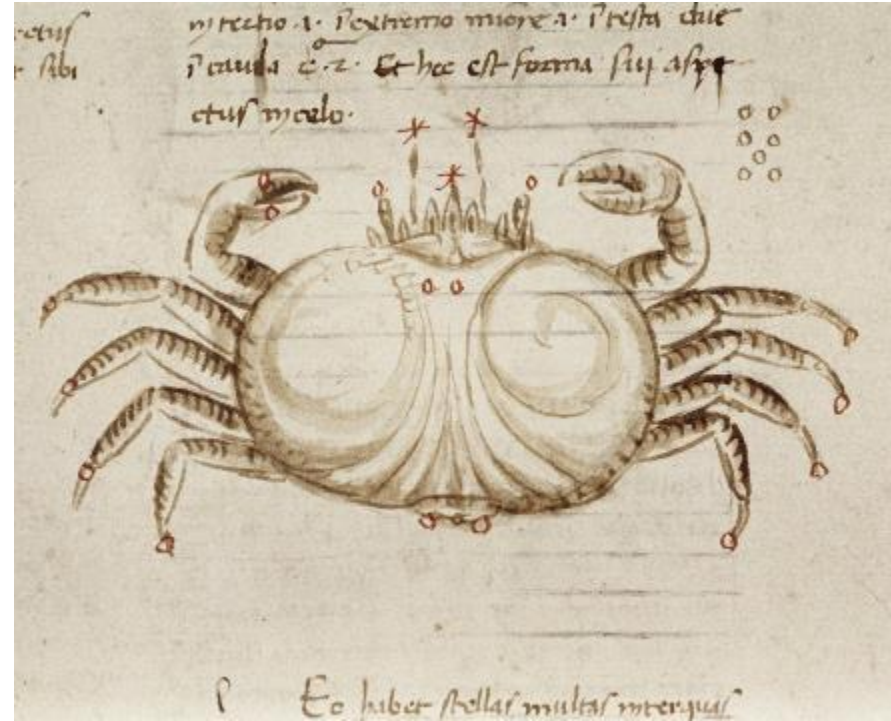 ectus
t sibi
in tertio .1. in extremo minore .1. in testa due
in cauda .2. Et hec est forma sui aspe
ctus in celo.
Eo habet stellas multas inter quas